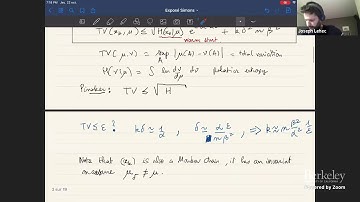 7:19 PM Jeu. 30 sept.
Exposé Simons
Joseph Lehec
TV(x_k, μ) ≤ √H(x_0 | μ) e + k δ² n β²
warm start
TV(μ, ν) = sup_A |μ(A) - ν(A)| = total variation
H(ν | μ) = ∫ ln dν/dμ dν relative entropy
Pinsker: TV ≤ √H
TV ≤ ε ? kδ ≈ 1/α , δ ≈ αε/nβ² , ⇒ k ≈ n β²/α² 1/ε
Note that (x_k) is also a Markov chain, it has an invariant
measure μ_δ ≠ μ.
2 sur 14
Berkeley
Powered by Zoom